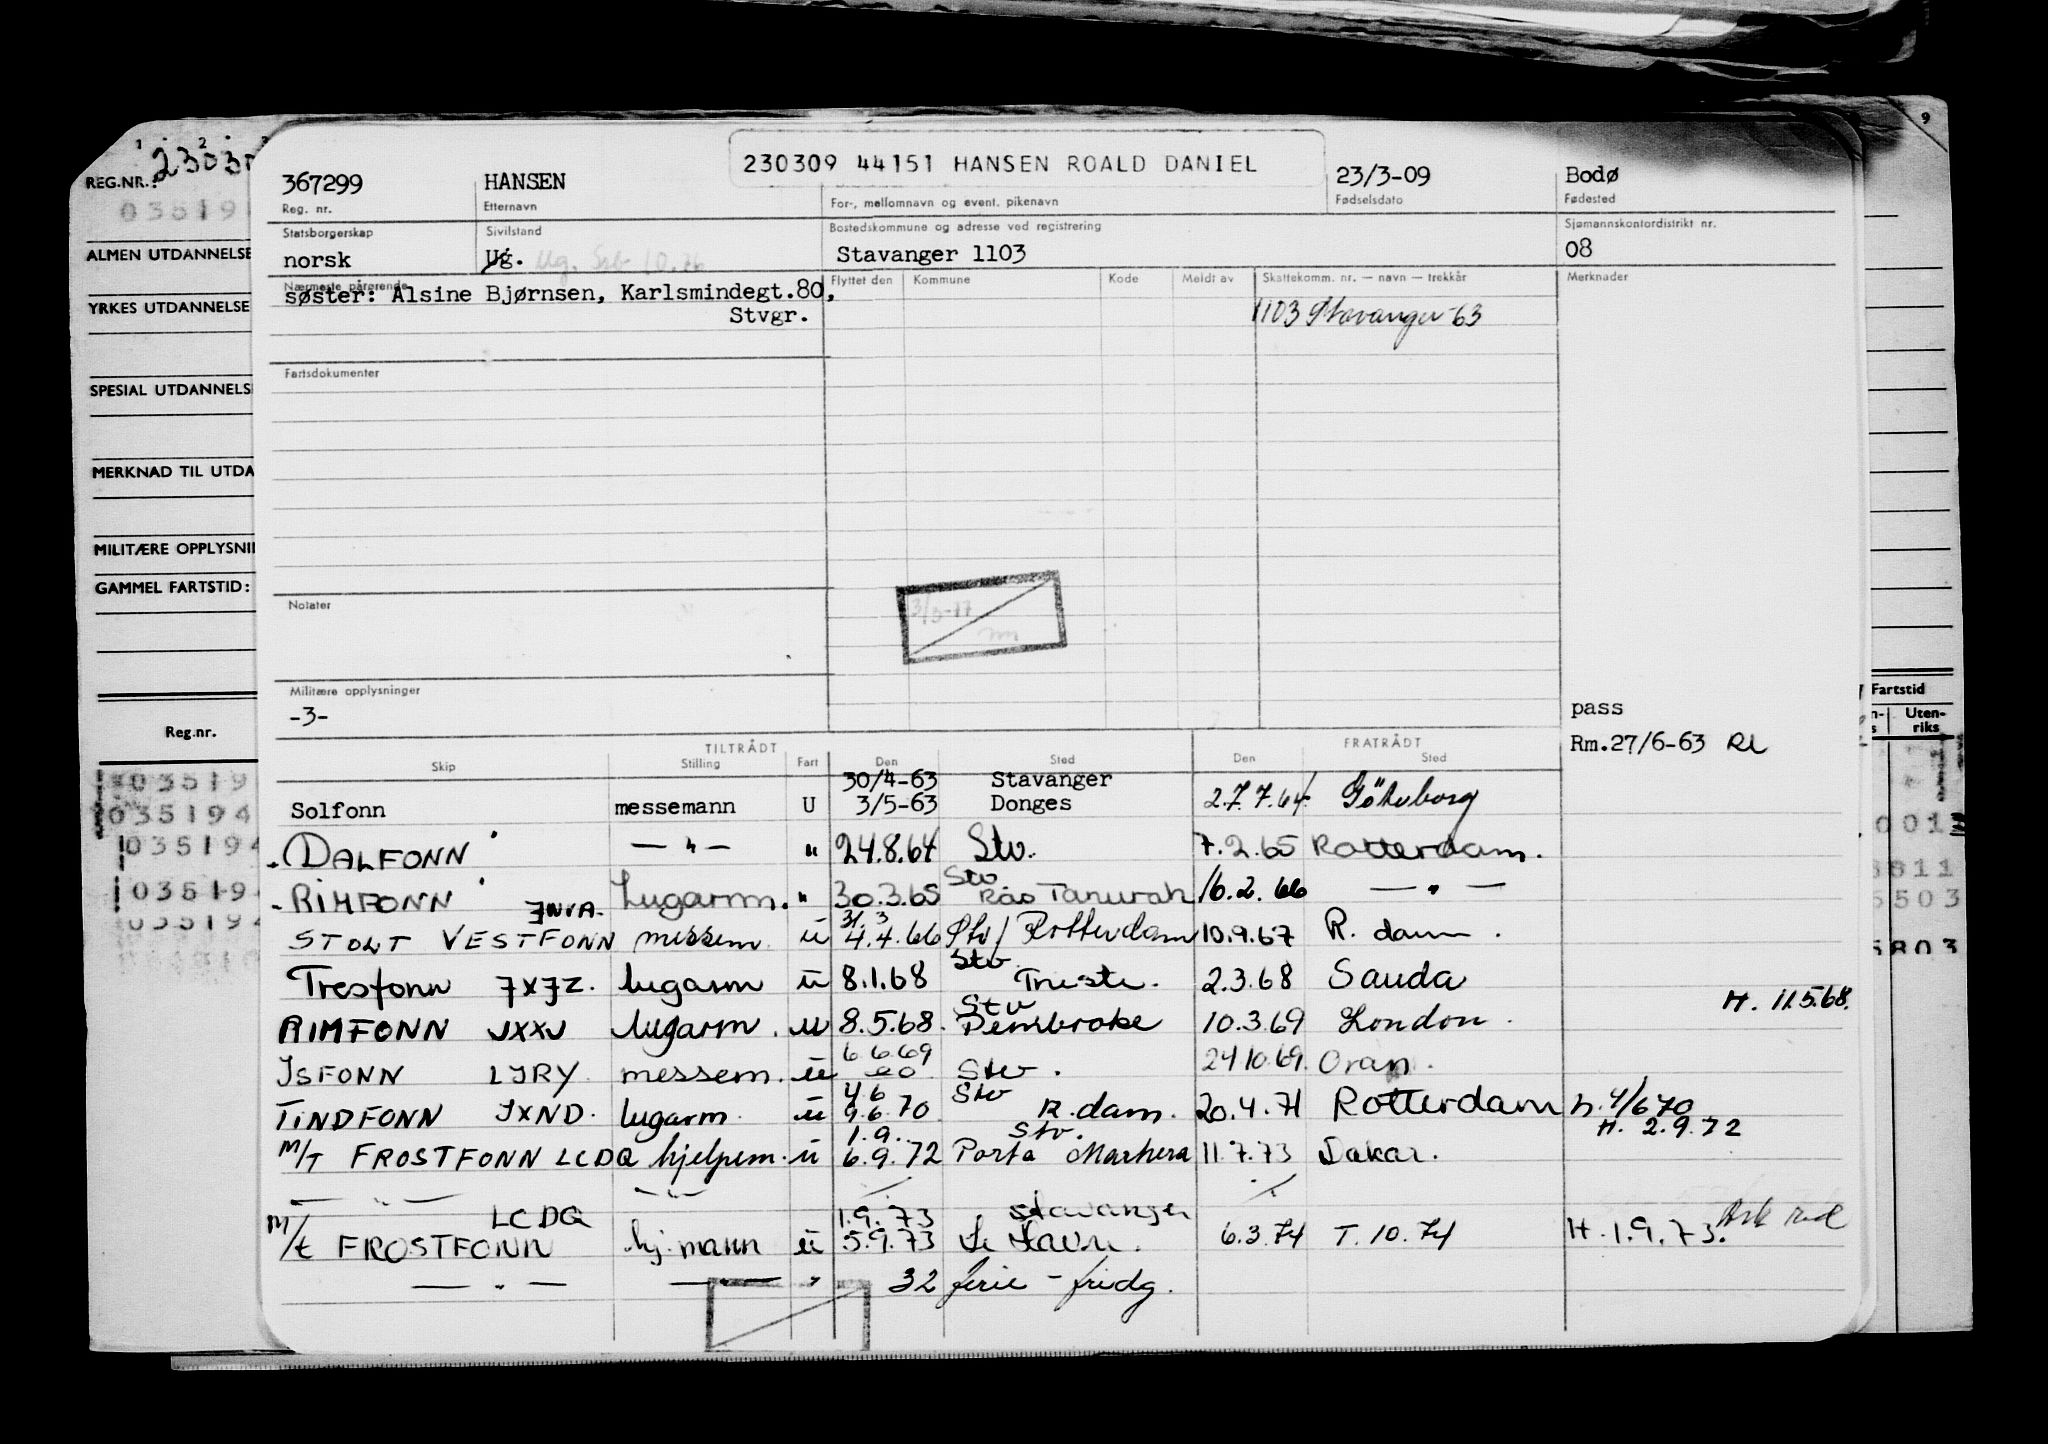 230309 44151 HANSEN ROALD DANIEL
367299 HANSEN 23/3-09 Bodø
Reg. nr. Etternavn For-, mellomnavn og event. pikenavn Fødselsdato Fødested
Statsborgerskap Sivilstand Bostedskommune og adresse ved registrering Sjømannskontordistrikt nr.
norsk Ug. Ug. Stavanger 1103 08
Nærmeste pårørende Flyttet den Kommune Kode Meldt av Skattekomm. nr. — navn — trekkår Merknader
søster: Alsine Bjørnsen, Karlsmindegt.80,
Stvgr. 1103 Stavanger-63
Fartsdokumenter
Notater
Militære opplysninger
-3-
pass
Rm.27/6-63
TILTRÅDT FRATRÅDT
Skip Stilling Fart Den Sted Den Sted
30/4-63 Stavanger
Solfonn messemann U 3/5-63 Donges 27.7.64 Göteborg
DALFONN — " — " 24.8.64 Stv. 7.2.65 Rotterdam.
Stv
RIMFONN Lugarm. " 30.3.65 Ras Tanurah 16.2.66 — " —
JNVA. 31.3
STOLT VESTFONN messem. u 4.4.66 Stv/ Rotterdam 10.9.67 R. dam.
Stv
Tresfonn JXJZ. lugarm u 8.1.68 Trieste. 2.3.68 Sauda
Stv H. 11.5.68.
RIMFONN JXXJ lugarm. u 8.5.68. Pembroke 10.3.69 London.
6.6.69
ISFONN LJRY. messem. u Stv. 24.10.69. Oran.
4.6 Stv
TINDFONN JXND. lugarm. u 9.6.70 R.dam. 20.4.71 Rotterdam h. 4/6 70
1.9. Stv. H. 2.9.72
M/T FROSTFONN LCDQ hjelpem. u 6.9.72 Porto Marhera 11.7.73 Dakar.
— " — — " —
LCDQ 1.9.73 Stavanger
M/t FROSTFONN hj.mann u 5.9.73 Le Havre. 6.3.74 T. 10.74 H. 1.9.73.
— " — — " — " 32 ferie - fridg.
REG.NR.: 23030
03519
ALMEN UTDANNELSE
YRKES UTDANNELSE
SPESIAL UTDANNELS
MERKNAD TIL UTDA
MILITÆRE OPPLYSNI
GAMMEL FARTSTID:
Reg.nr.
03519
035194
035194
03519
035194
9
Fartstid
Uten-
riks